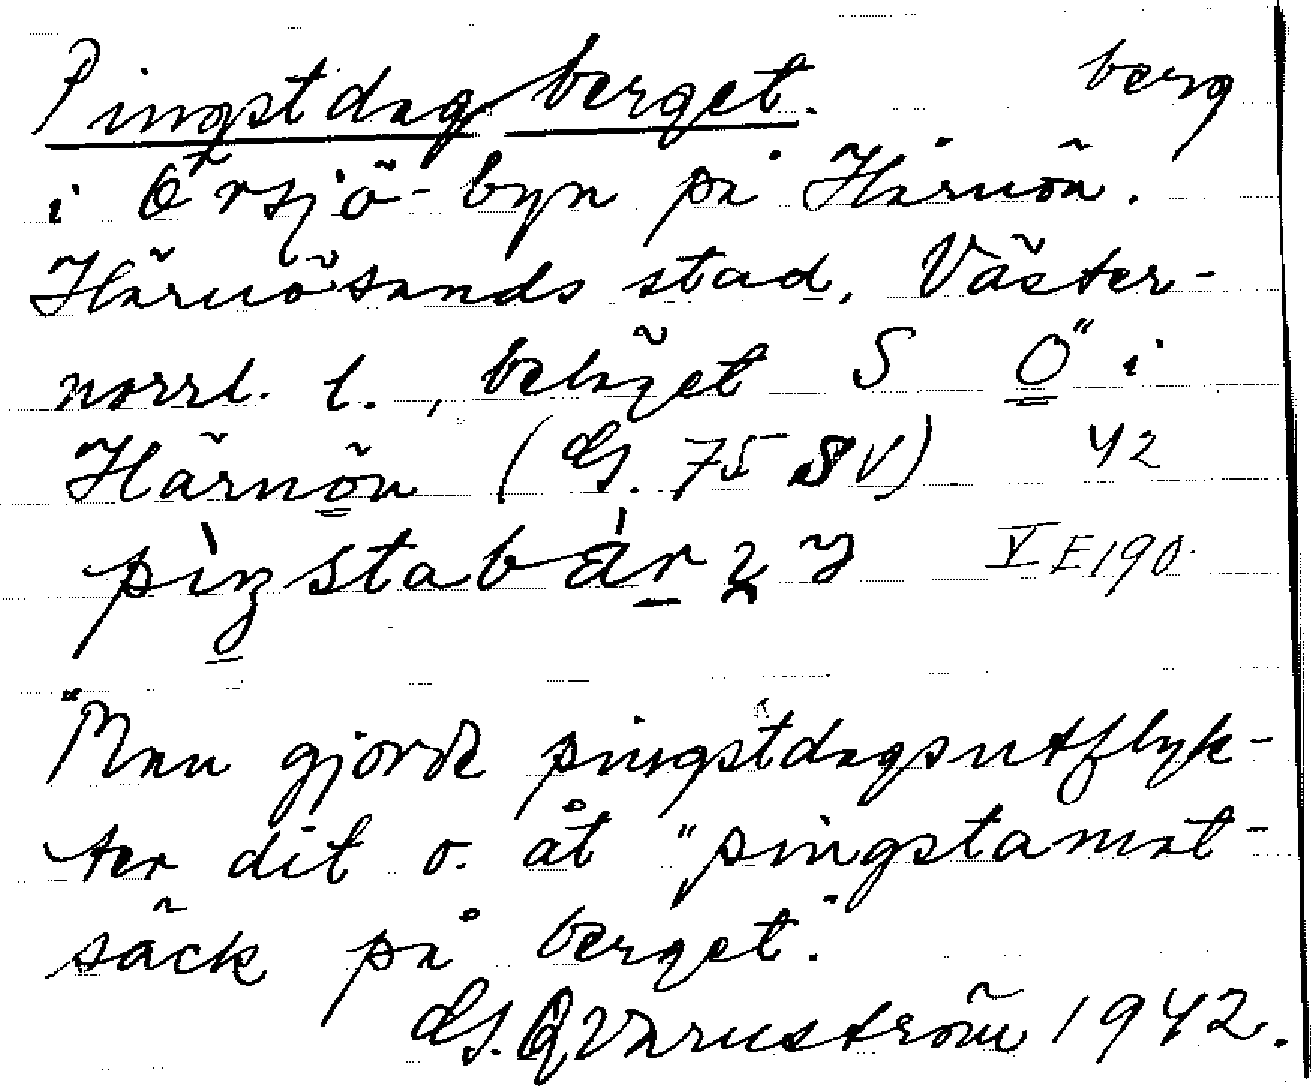 Pingstdagberget. berg
i Örsjö-byn på Härnön.
Härnösands stad, Väster-
norrl. l., beläget S Ö i
Härnön (GS. 75 SV) 42
V E190.
"Man gjorde pingstdagsutflyk-
ter dit o. åt "pingstamat-
säck på berget."
GS. Qvarnström 1942.